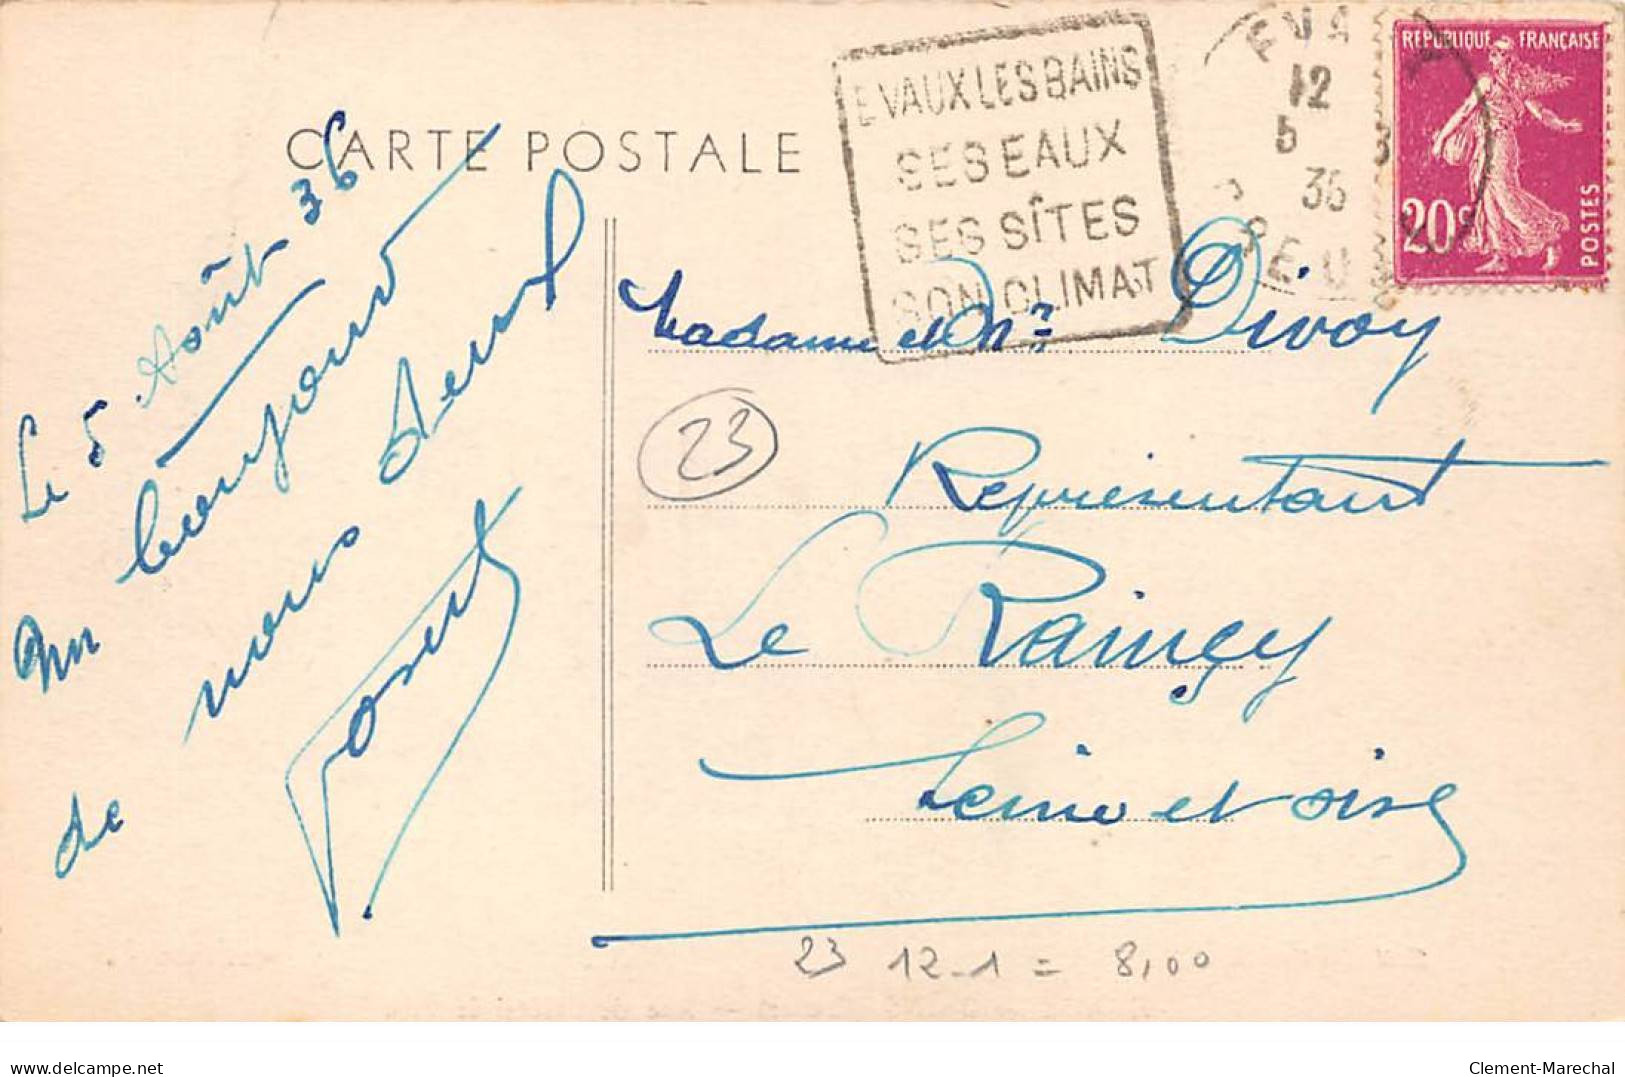 CARTE POSTALE
EVAUX LES BAINS
SES EAUX
SES SÎTES
SON CLIMAT
EVA
12
5 8
36
REUSE
REPUBLIQUE FRANÇAISE
20c
POSTES
Le 5 Août 36
Un bonjour
de nous deux
Madame et Mr Divoy
Représentant
Le Raincy
Seine et oise
23
23 12-1 = 8,00
delcampe.net
Clement-Marechal